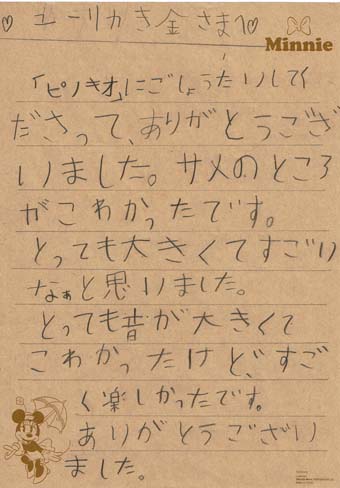 ♡ ユーリカき金さまへ♡
Minnie
「ピノキオ」にごしょうたいしてく
ださって、ありがとうござ
いました。サメのところ
がこわかったです。
とっても大きくてすごい
なぁと思いました。
とっても音が大きくて
こわかったけど、すご
く楽しかったです。
ありがとうござい
ました。